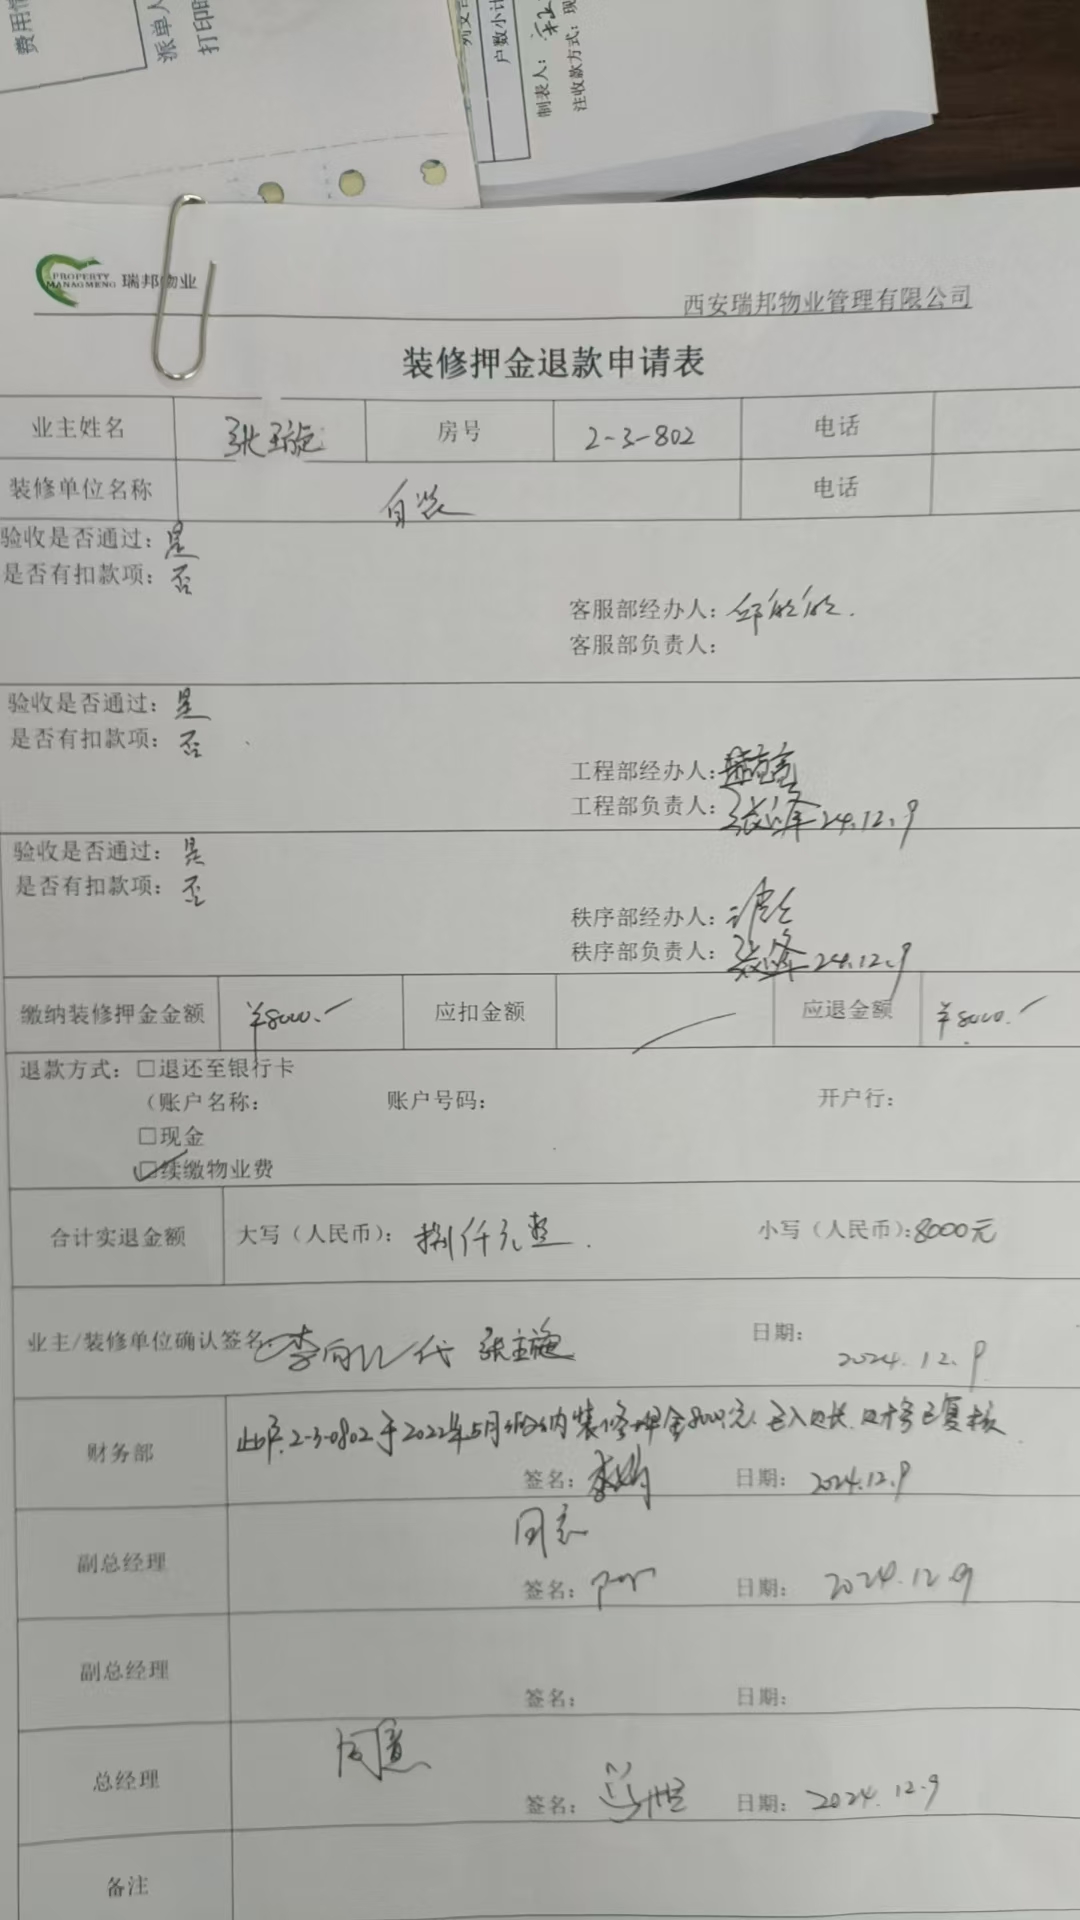 费用
派单人
打印时
户数小计
制表人：
注收款方式：现
PROPERTY
MANAGMENG 瑞邦物业
西安瑞邦物业管理有限公司
装修押金退款申请表
业主姓名 张玉旋 房号 2-3-802 电话
装修单位名称 自装 电话
验收是否通过：是
是否有扣款项：否
客服部经办人：邱
客服部负责人：
验收是否通过：是
是否有扣款项：否
工程部经办人：
工程部负责人：张 24.12.9
验收是否通过：是
是否有扣款项：否
秩序部经办人：
秩序部负责人：张 24.12.9
缴纳装修押金金额 ¥8000.- 应扣金额 应退金额 ¥8000.-
退款方式：□退还至银行卡
（账户名称： 账户号码： 开户行：
□现金
☑续缴物业费
合计实退金额 大写（人民币）：捌仟元整. 小写（人民币）：8000元
业主/装修单位确认签名： 代 日期：2024.12.9
此户2-3-0802于2022年5月缴纳装修押金8000元，已入账，财务已复核
财务部 签名：李 日期：2024.12.9
同意
副总经理 签名： 日期：2024.12.9
副总经理 签名： 日期：
同意
总经理 签名： 日期：2024.12.9
备注